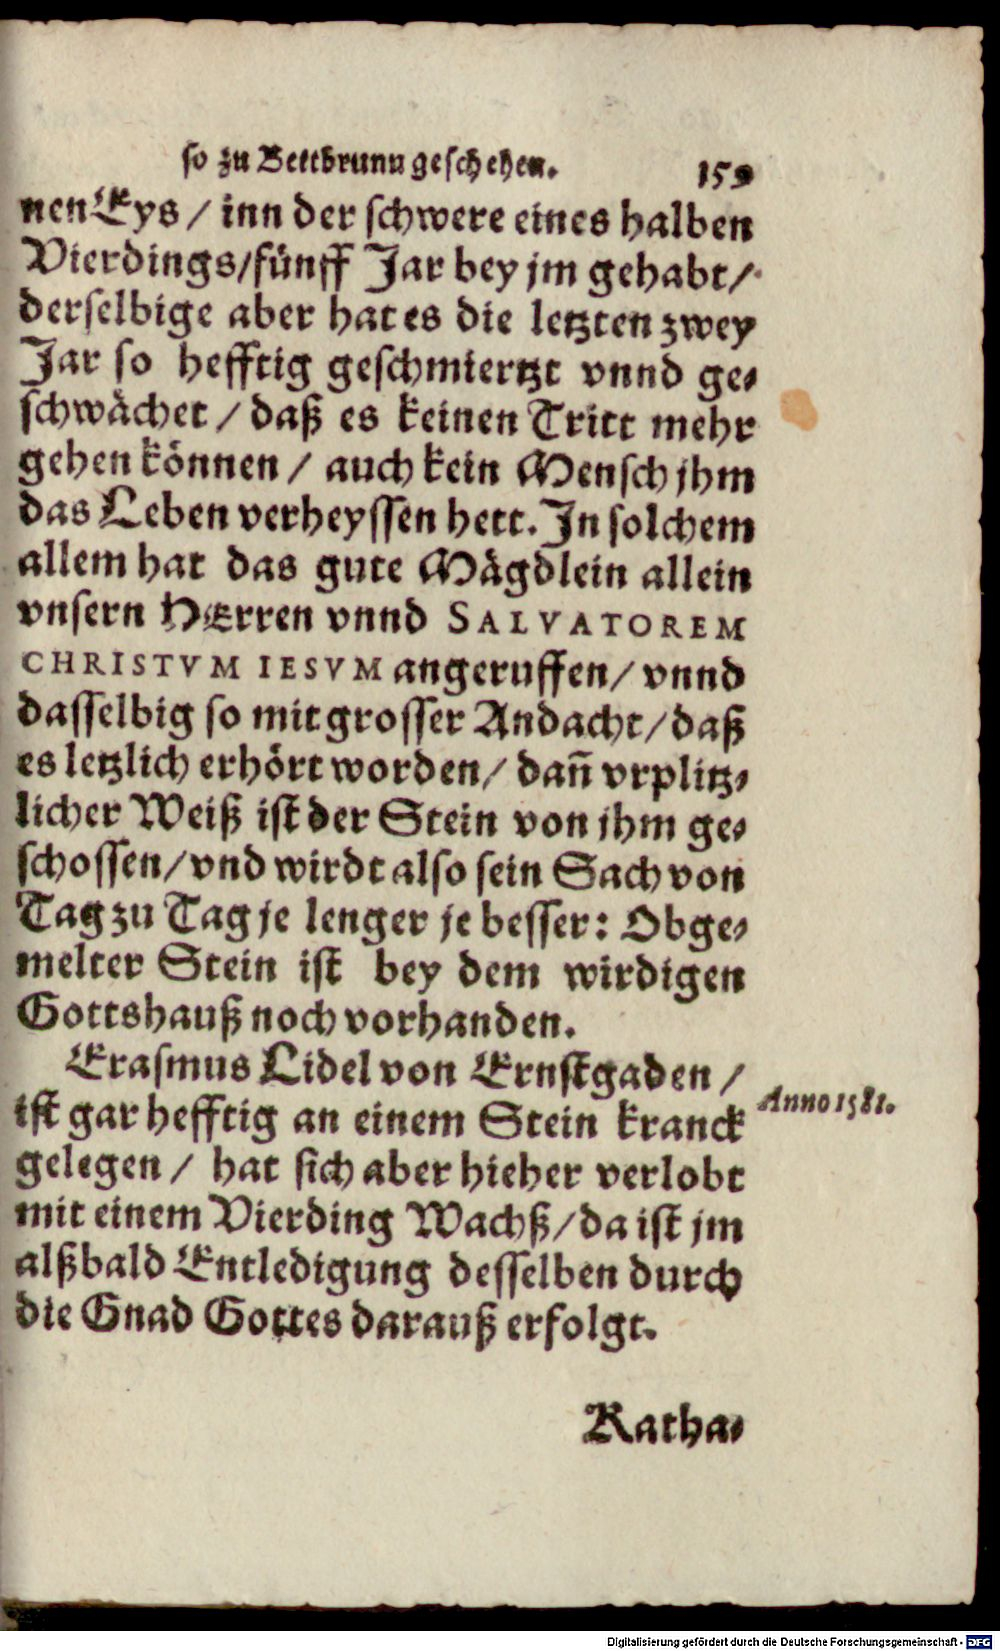 so zu Bettbrunn geschehen. 159
nen Eys / inn der schwere eines halben
Vierdings/fünff Jar bey jm gehabt/
derselbige aber hat es die letzten zwey
Jar so hefftig geschmiertzt vnnd ge⸗
schwächet / daß es keinen Tritt mehr
gehen können / auch kein Mensch jhm
das Leben verheyssen hett. In solchem
allem hat das gute Mägdlein allein
vnsern HErren vnnd SALVATOREM
CHRISTVM IESVM angeruffen/ vnnd
dasselbig so mit grosser Andacht/ daß
es letzlich erhört worden/ dañ vrplitz⸗
licher Weiß ist der Stein von jhm ge⸗
schossen/vnd wirdt also sein Sach von
Tag zu Tag je lenger je besser: Obge⸗
melter Stein ist bey dem wirdigen
Gottshauß noch vorhanden.
Erasmus Lidel von Ernstgaden /
ist gar hefftig an einem Stein kranck
gelegen / hat sich aber hieher verlobt
mit einem Vierding Wachß/da ist jm
alßbald Entledigung desselben durch
die Gnad Gottes darauß erfolgt.
Anno 1581.
Katha⸗
Digitalisierung gefördert durch die Deutsche Forschungsgemeinschaft - DFG